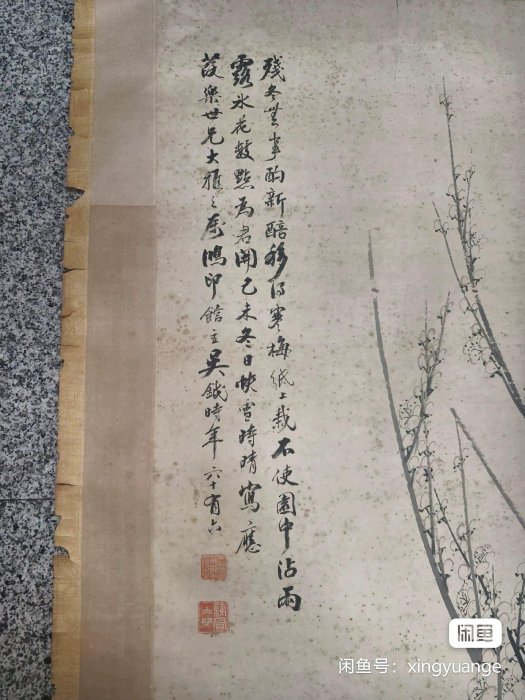 残冬无事酌新醅移得寒梅纸上栽不使园中沾雨
露冰花数點为君開己未冬日快雪時晴寫應
茝樂世兄大雅之属鴻印館主吴鈛時年六十有六
闲鱼
闲鱼号：xingyuange